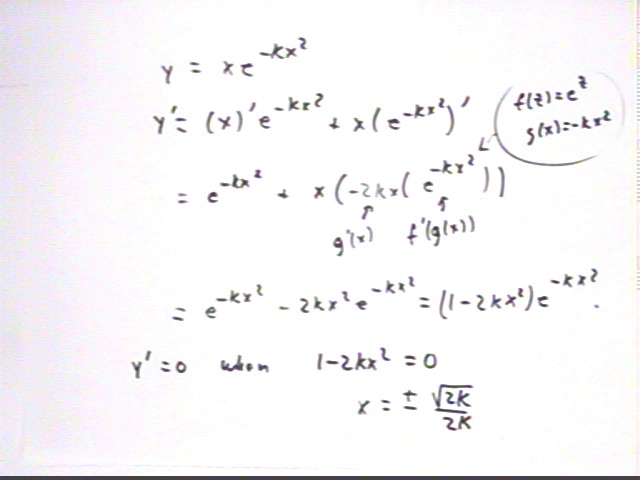 y = xe^{-kx²}
y' = (x)'e^{-kx²} + x(e^{-kx²})'
f(z)=e^z
g(x)=-kx²
= e^{-kx²} + x(-2kx(e^{-kx²}))
g'(x) f'(g(x))
= e^{-kx²} - 2kx²e^{-kx²} = (1-2kx²)e^{-kx²}.
y'=0 when 1-2kx² = 0
x = ± √2k/2k